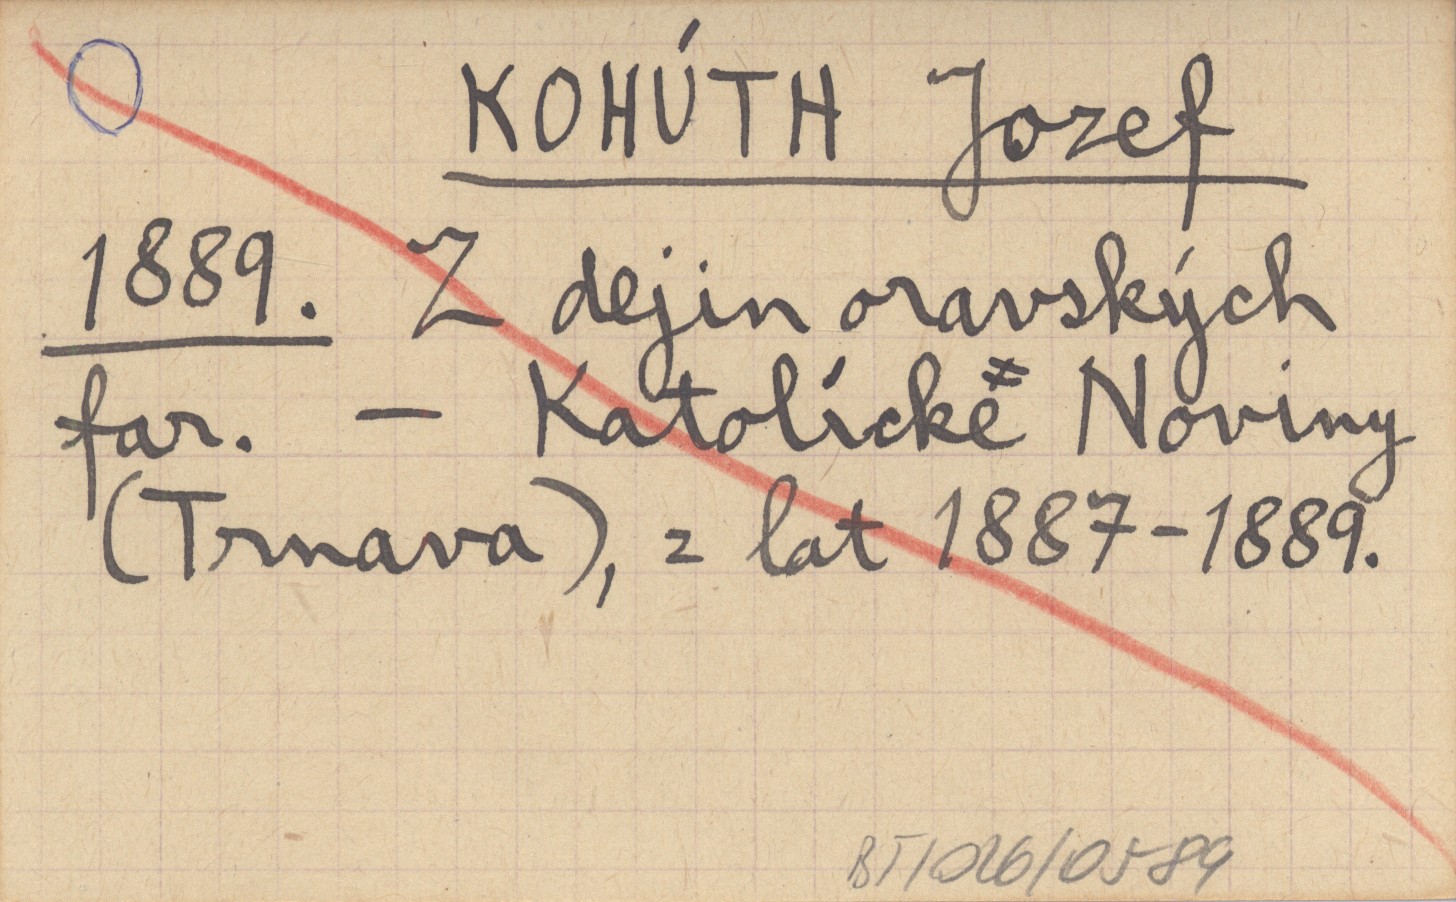 KOHÚTH Jozef
1889. Z dejin oravských
far. – Katolícke Noviny
(Trnava), z lat 1887-1889.
BT/026/0589